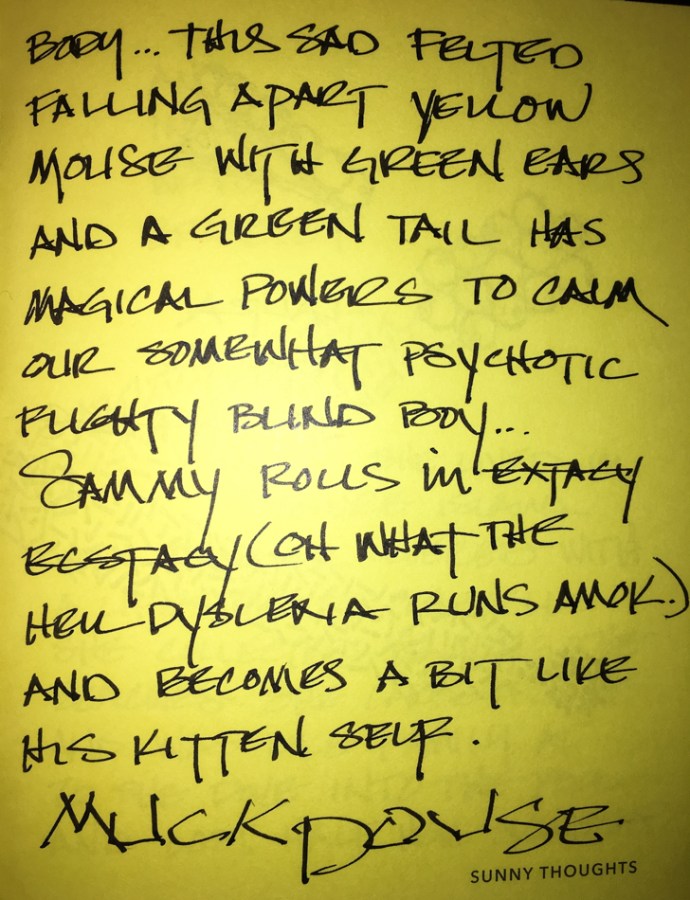 BODY... THIS SAD FELTED
FALLING APART YELLOW
MOUSE WITH GREEN EARS
AND A GREEN TAIL HAS
MAGICAL POWERS TO CALM
OUR SOMEWHAT PSYCHOTIC
FLIGHTY BLIND BOY...
SAMMY ROLLS IN EXTACY
ECSTACY (OH WHAT THE
HELL DYSLEXIA RUNS AMOK.)
AND BECOMES A BIT LIKE
HIS KITTEN SELF.
MUCKDOUSE
SUNNY THOUGHTS